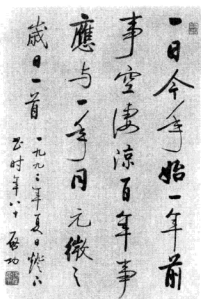 一日今年始一年前
事空淒涼百年事
應与一年同 元微之
歲日一首 一九九二年夏日
書时年八十 啟功